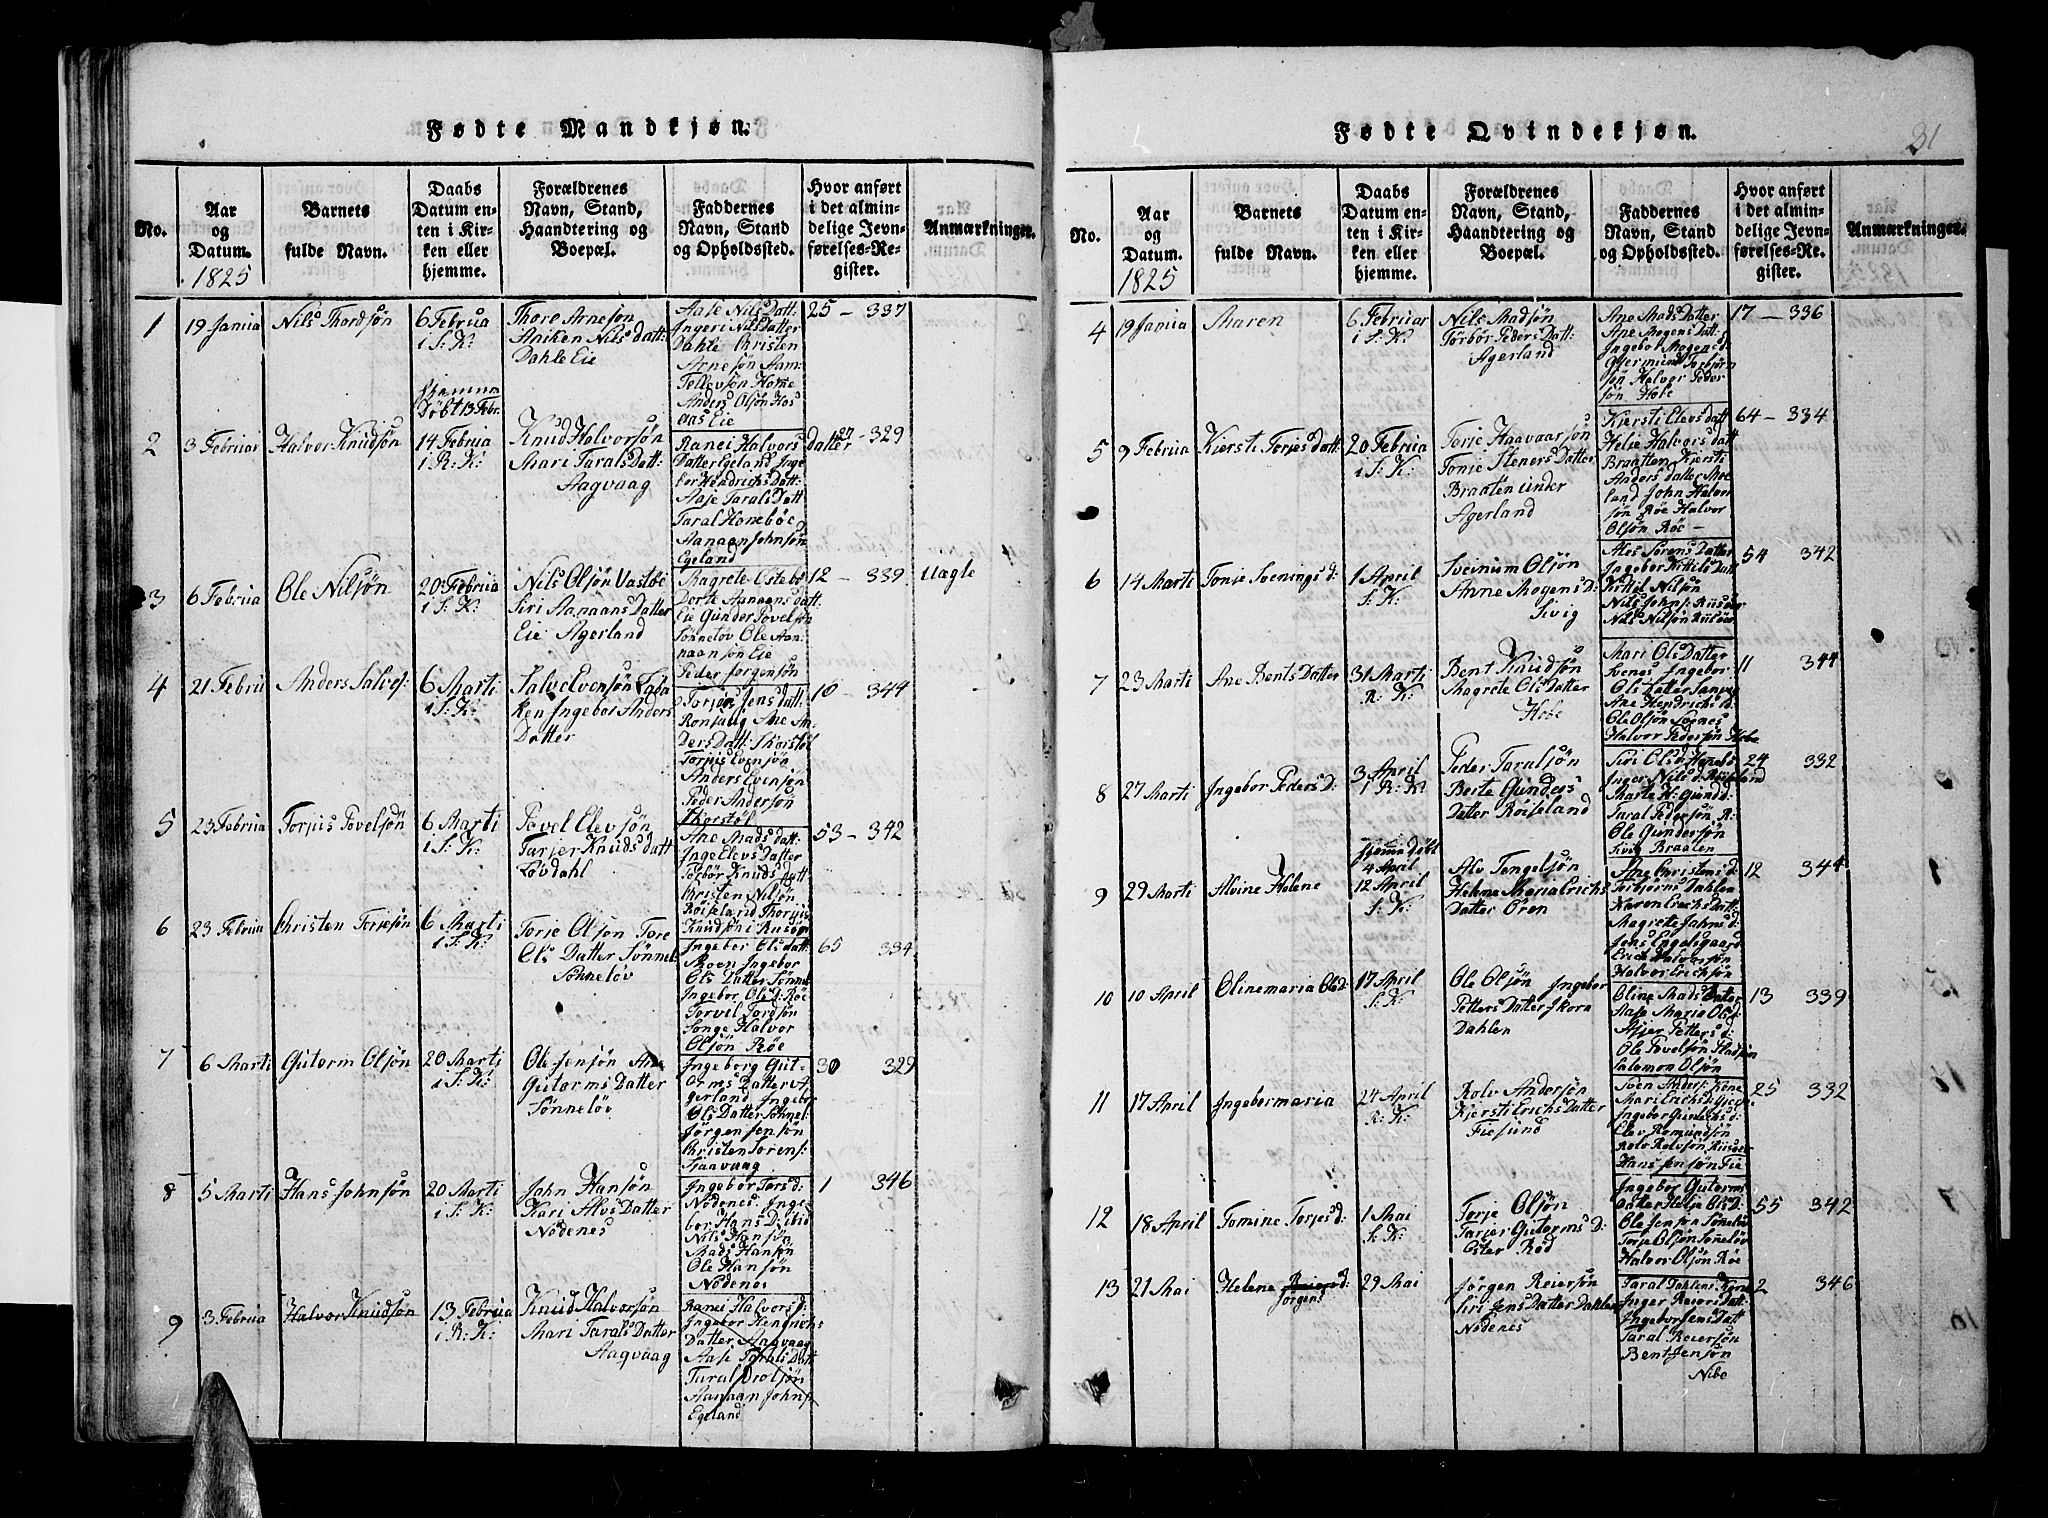 Fødte Mandkjøn.
No.
Aar
og
Datum.
1825
Barnets
fulde Navn.
Daabs
Datum en-
ten i Kir-
ken eller
hjemme.
Forældrenes
Navn, Stand,
Haandtering og
Boepæl.
Faddernes
Navn, Stand
og Opholdssted.
Hvor anført
i det almin-
delige Jevn-
førelses-Re-
gister.
Anmærkninger.
1
19 Janua
Nils Thordsön
6 Februa
i S: K:
Thore Arnesön
Aniken Nils datt:
Dahle Eie
Aase Nils Datt:
Ingeri Nils Datter
Dahle Christen
Arnesön Aam:
Tellevsön Home
Anders Olsön Hos
aas Eie
25 — 337
2
3 Februar
Halvor Knudsön
Hjemme
Döbt 13 Febr.
14 Februa
i R: K:
Knud Halvorsön
Mari Tarals Datt:
Aagvaag
Ranei Halvors
Datter Egeland Inge
bor Hendrichs Datt:
Aase Tarals Datt
Taral Honeböe
Aanaan Johnsön
Egeland
27 - 329
3
6 Februa
Ole Nilsön
20 Februa
i S: K:
Nils Olsön Vastöe
Siri Aanaans Datter
Eie Agerland
Magrete Ostebö
Dorte Aanaans datt:
Eie Gunder Povelsön
Sönnelöv Ole Aan:
naansön Eie
Peder Jorgensön
12 — 339
Uægte
4
21 Februa
Anders Salves:
6 Marti
i S: K:
Salve Evensön
Ingebor Anders
Datter
Torjör Jens datt:
Ronjaug Ane An
Ders Datt: Skarstöl
Torjus Evensön
Anders Evensön
Peder Andersön
Skorstöl
10 — 344
5
23 Februa
Torjus Povelsön
6 Marti
i S: K:
Povel Elevsön
Tarjer Knuds datt
Lövdahl
Ane Mads Datt:
Inge Elevs Datter
Torbör Knuds datt
Christen Nilsön
Röiseland Thorjus
Knudsön i Rusögn
53 — 342
6
23 Februa
Christen Torjesön
6 Marti
i S: K:
Torje Olsön Tore
Ols Datter Sönnel:
Sönnelöv
Ingebor Ols datt:
Moen Ingebor
Ols Datter Sönne
Ingebor Ols D: Röe
Torvil Tordsön
Songe Halvor
Olsön Röe
65 334
7
6 Marti
Gutorm Olsön
20 Marti
i S: K:
Ole Jensön Ane
Gutorms Datter
Sönnelöv
Ingeborg Gut-
orms Datter A
gerland Ingebor
Ols Datter Sönnel:
Jörgen Jensön
Christen Sorens:
Sjaavaag
30 329
8
5 Marti
Hans Johnsön
20 Marti
i S: K:
John Hansön
Kari Alvs Datter
Nödenes
Ingebor Tors d:
Nödenes: Inge
bor Hans D: Sibö
Nils Hansön
Mads Hansön
Ole Hansön
Nödenes
1 346
9
3 Februa
Halvor Knudsön
13 Februa
i R: K:
Knud Halvorsön
Mari Tarals Datter
Aagvaag
Ranei Halvors d:
Ingebor Hendrichs
Datter Aagvaag
Aase Tarals Datt
Taral Drolsön
Aanaan Johns
Egeland
Fødte Qvindekjøn.
31
No.
Aar
og
Datum.
1825
Barnets
fulde Navn.
Daabs
Datum en-
ten i Kir-
ken eller
hjemme.
Forældrenes
Navn, Stand,
Haandtering og
Boepæl.
Faddernes
Navn, Stand
og Opholdssted.
Hvor anført
i det almin-
delige Jevn-
førelses-Re-
gister.
Anmærkninger.
4
19 Janua
Maren
6 Februar
i S: K:
Nils Madsön
Torbör Peders Datt:
Agerland
Ane Mads Datter
Ane Mogens Datt:
Ingebor Mogens d:
Gjermund Torbjörn
sön Halvor Peder
sön Hobe
17 — 336
5
9 Februa
Kiersti Torjes datt:
20 Februa
i S: K:
Torje Haavaarsön
Tonje Steners Datter
Braaten under
Agerland
Kiersti Elevs datt
Helie Halvors datt
Braatten Kjersti
Anders datter Moe
land John Halvor
sön Röe Halvor
Olsön Röe —
64 — 334
6
14 Marti
Tonje Svenings d:
1 April
S: K:
Sveinum Olsön
Anne Mogens D:
Sivig
Ales Sörens Datter
Ingebor Kittils Datt
Kittil Nilsön
Nils Johns: Riisöer
Nils Nilsön Riisöer
54 342
7
23 Marti
Ane Bents Datter
31 Marti
R: K:
Bent Knudsön
Magrete Ols Datter
Hobe
Mari Ols Datter
Svenes Ingebor
Ols Datter
Ane Hendrichs d:
Ole Olsön Svenes
Halvor Pedersön Hobe
11 344
8
27 Marti
Ingebor Peders D:
3 April
i R: K:
Peder Taralsön
Berte Gunders
Datter Röiseland
Siri Ols d: Honebö
Inger Nils d: Röiseland
Marte H: Gund d:
Taral Pedersön R:
Ole Gundersön
Sivig Braaten
24 332
9
29 Marti
Alvine Helene
Hjemme döbt
4 April
12 April
S: K:
Alv Tengelsön
Helene Maria Erichs
Datter Oren
Ane Christens d:
Torbjorns Dahlen
Karen Erichs Datt
Magrete Jahns d:
Jens Engelsgaard
Erich Halvorsön
Halvor Erichsön
12 344
10
10 April
Olinemaria Ols d:
17 April
S: K:
Ole Olsön Ingebor
Petters Datter Skora
Dahlen
Oline Mads Datter
Aase Maria Ols d:
Asjer Petters d:
Ole Povelsön
Salomon Olsön
13 339
11
17 April
Ingebor maria
24 April
R: K:
Rolv Andersön
Kjersti Erichs Datter
Fiesund
Sven Anders: Röne
Mari Erichs d:
Ingebor Gunlichs d:
Elev Romundsön
Rolv Rolvsön Riisöer
Hans Jensön Fie
25 332
12
18 April
Tomine Torjes d:
1 Mai
S: K:
Torje Olsön
Tarjer Gutorms D:
Oster Röd
Ingebor Gutorms
datter Helje Ols D:
Ole Jensön Sönnelöv
Torje Olsön Sonelöv
Halvor Olsön Röe
55 342
13
21 Mai
Helene Reiers d:
Jörgens
29 Mai
Jörgen Reiersön
Siri Jens Datter Dahlen
Nödenes
Taral Dahlens Kone
Inger Reiers Datt:
Ingebor Jens Datt
Taral Reiersön
Bent Jensön
Nibe
2 346